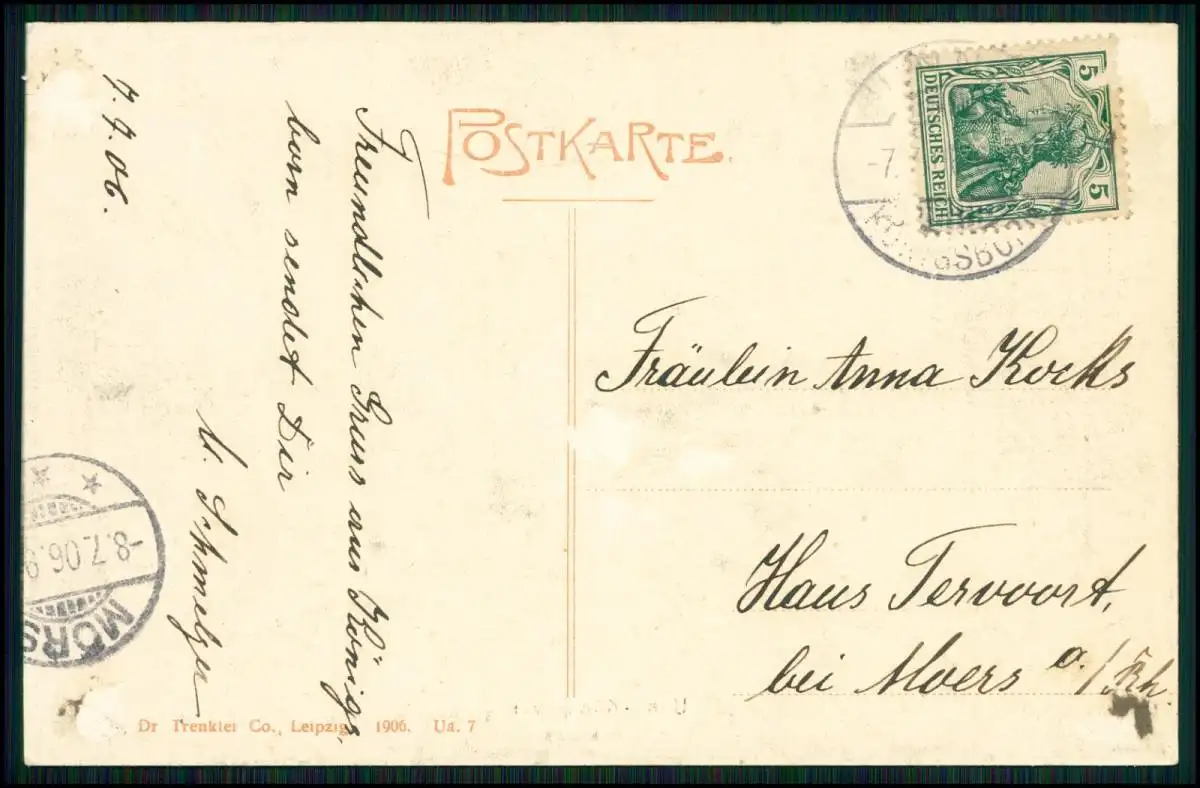 POSTKARTE
7.7.06.
Freundlichen Gruss aus Königs
born sendet Dir
M. Schmelzer
5 DEUTSCHES REICH 5
-7.
KÖNIGSBOR
Fräulein Anna Kocks
Haus Tervoort,
bei Moers a./Rh
-8.7.06.
MÖRS
Dr Trenkler Co., Leipzig. 1906. Ua. 7